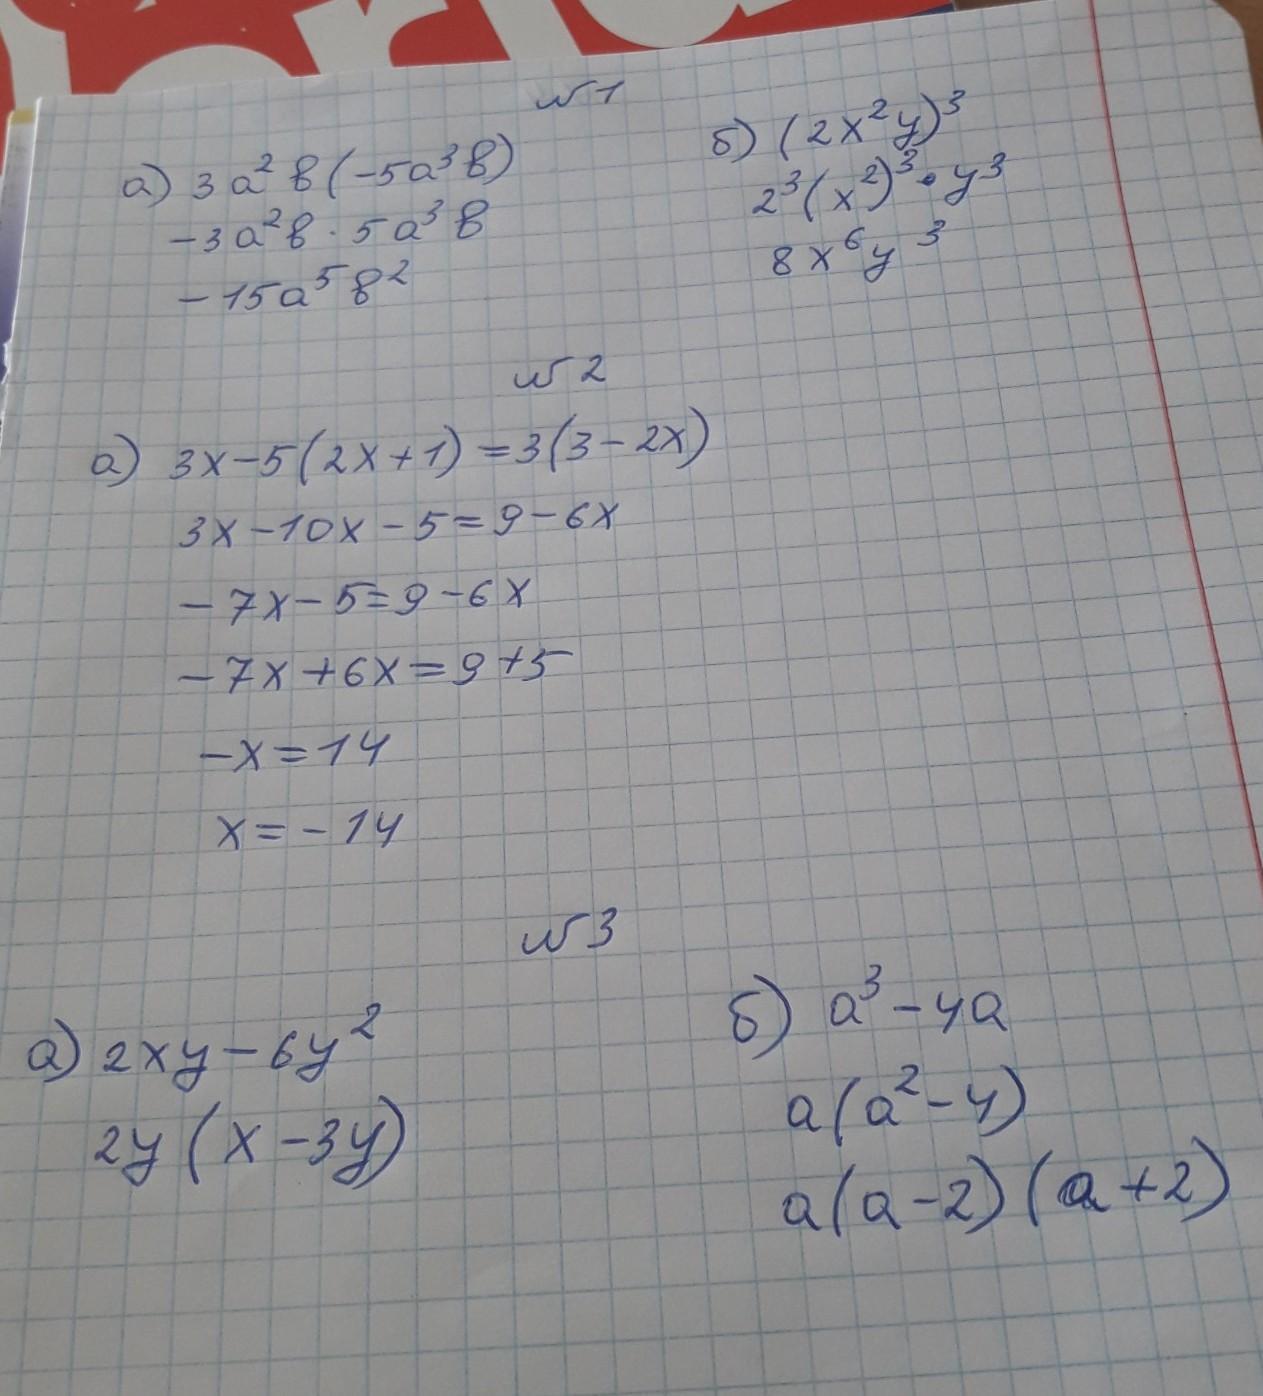 №1
а) 3a²b(-5a³b)
-3a²b · 5a³b
-15a⁵b²
б) (2x²y)³
2³(x²)³·y³
8x⁶y³
№2
а) 3x-5(2x+1)=3(3-2x)
3x-10x-5=9-6x
-7x-5=9-6x
-7x+6x=9+5
-x=14
x=-14
№3
а) 2xy-6y²
2y(x-3y)
б) a³-4a
a(a²-4)
a(a-2)(a+2)